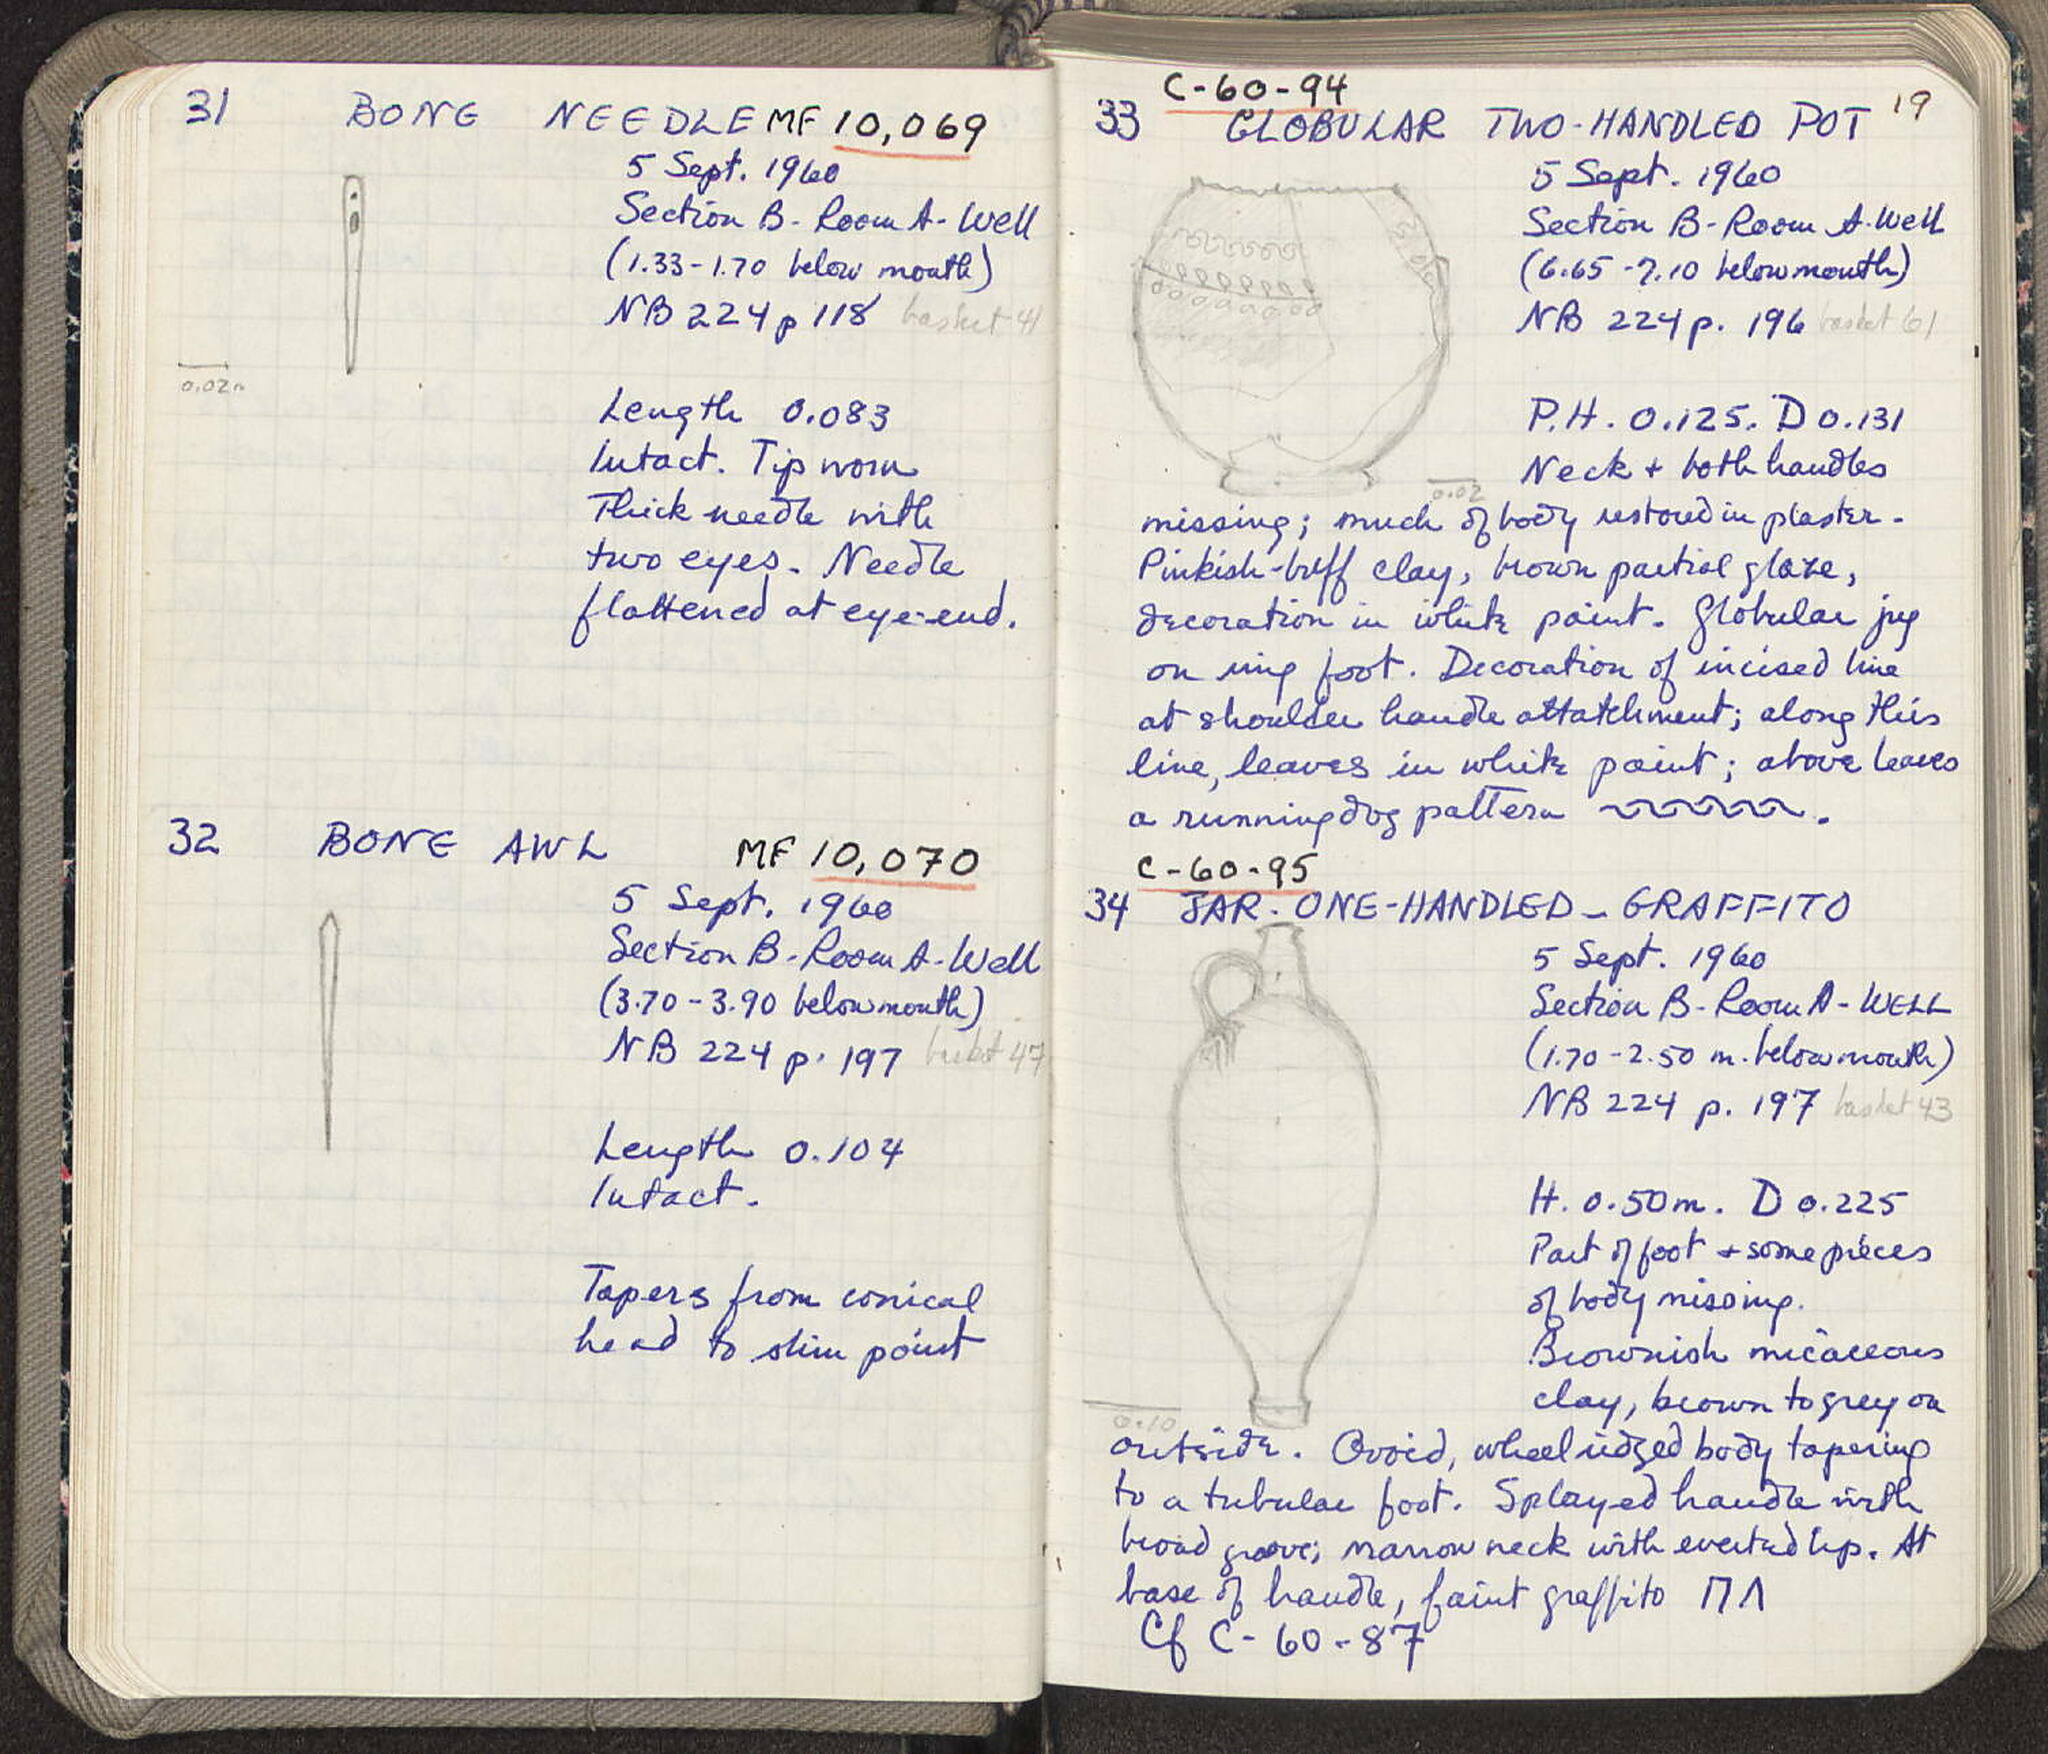 31 BONE NEEDLE MF 10,069
5 Sept. 1960
Section B - Room A - Well
(1.33 - 1.70 below mouth)
NB 224 p 118 basket 41
0.02m
Length 0.083
Intact. Tip worn
Thick needle with
two eyes. Needle
flattened at eye-end.
32 BONE AWL MF 10,070
5 Sept. 1960
Section B - Room A - Well
(3.70 - 3.90 below mouth)
NB 224 p. 197 basket 47
Length 0.104
Intact.
Tapers from conical
head to slim point
19
C-60-94
33 GLOBULAR TWO-HANDLED POT
5 Sept. 1960
Section B - Room A - Well
(6.65 - 7.10 below mouth)
NB 224 p. 196 basket 61
P.H. 0.125. D 0.131
Neck + both handles
0.02
missing; much of body restored in plaster.
Pinkish-buff clay, brown partial glaze,
decoration in white paint. Globular jug
on ring foot. Decoration of incised line
at shoulder handle attatchment; along this
line, leaves in white paint; above leaves
a running dog pattern .
C-60-95
34 JAR - ONE-HANDLED - GRAFFITO
5 Sept. 1960
Section B - Room A - WELL
(1.70 - 2.50 m. below mouth)
NB 224 p. 197 basket 43
H. 0.50m. D 0.225
Part of foot + some pieces
of body missing.
Brownish micaceous
clay, brown to grey on
0.10
outside. Ovoid, wheel ridged body tapering
to a tubular foot. Splayed handle with
broad groove; narrow neck with everted lip. At
base of handle, faint graffito ΠΛ
Cf C-60-87